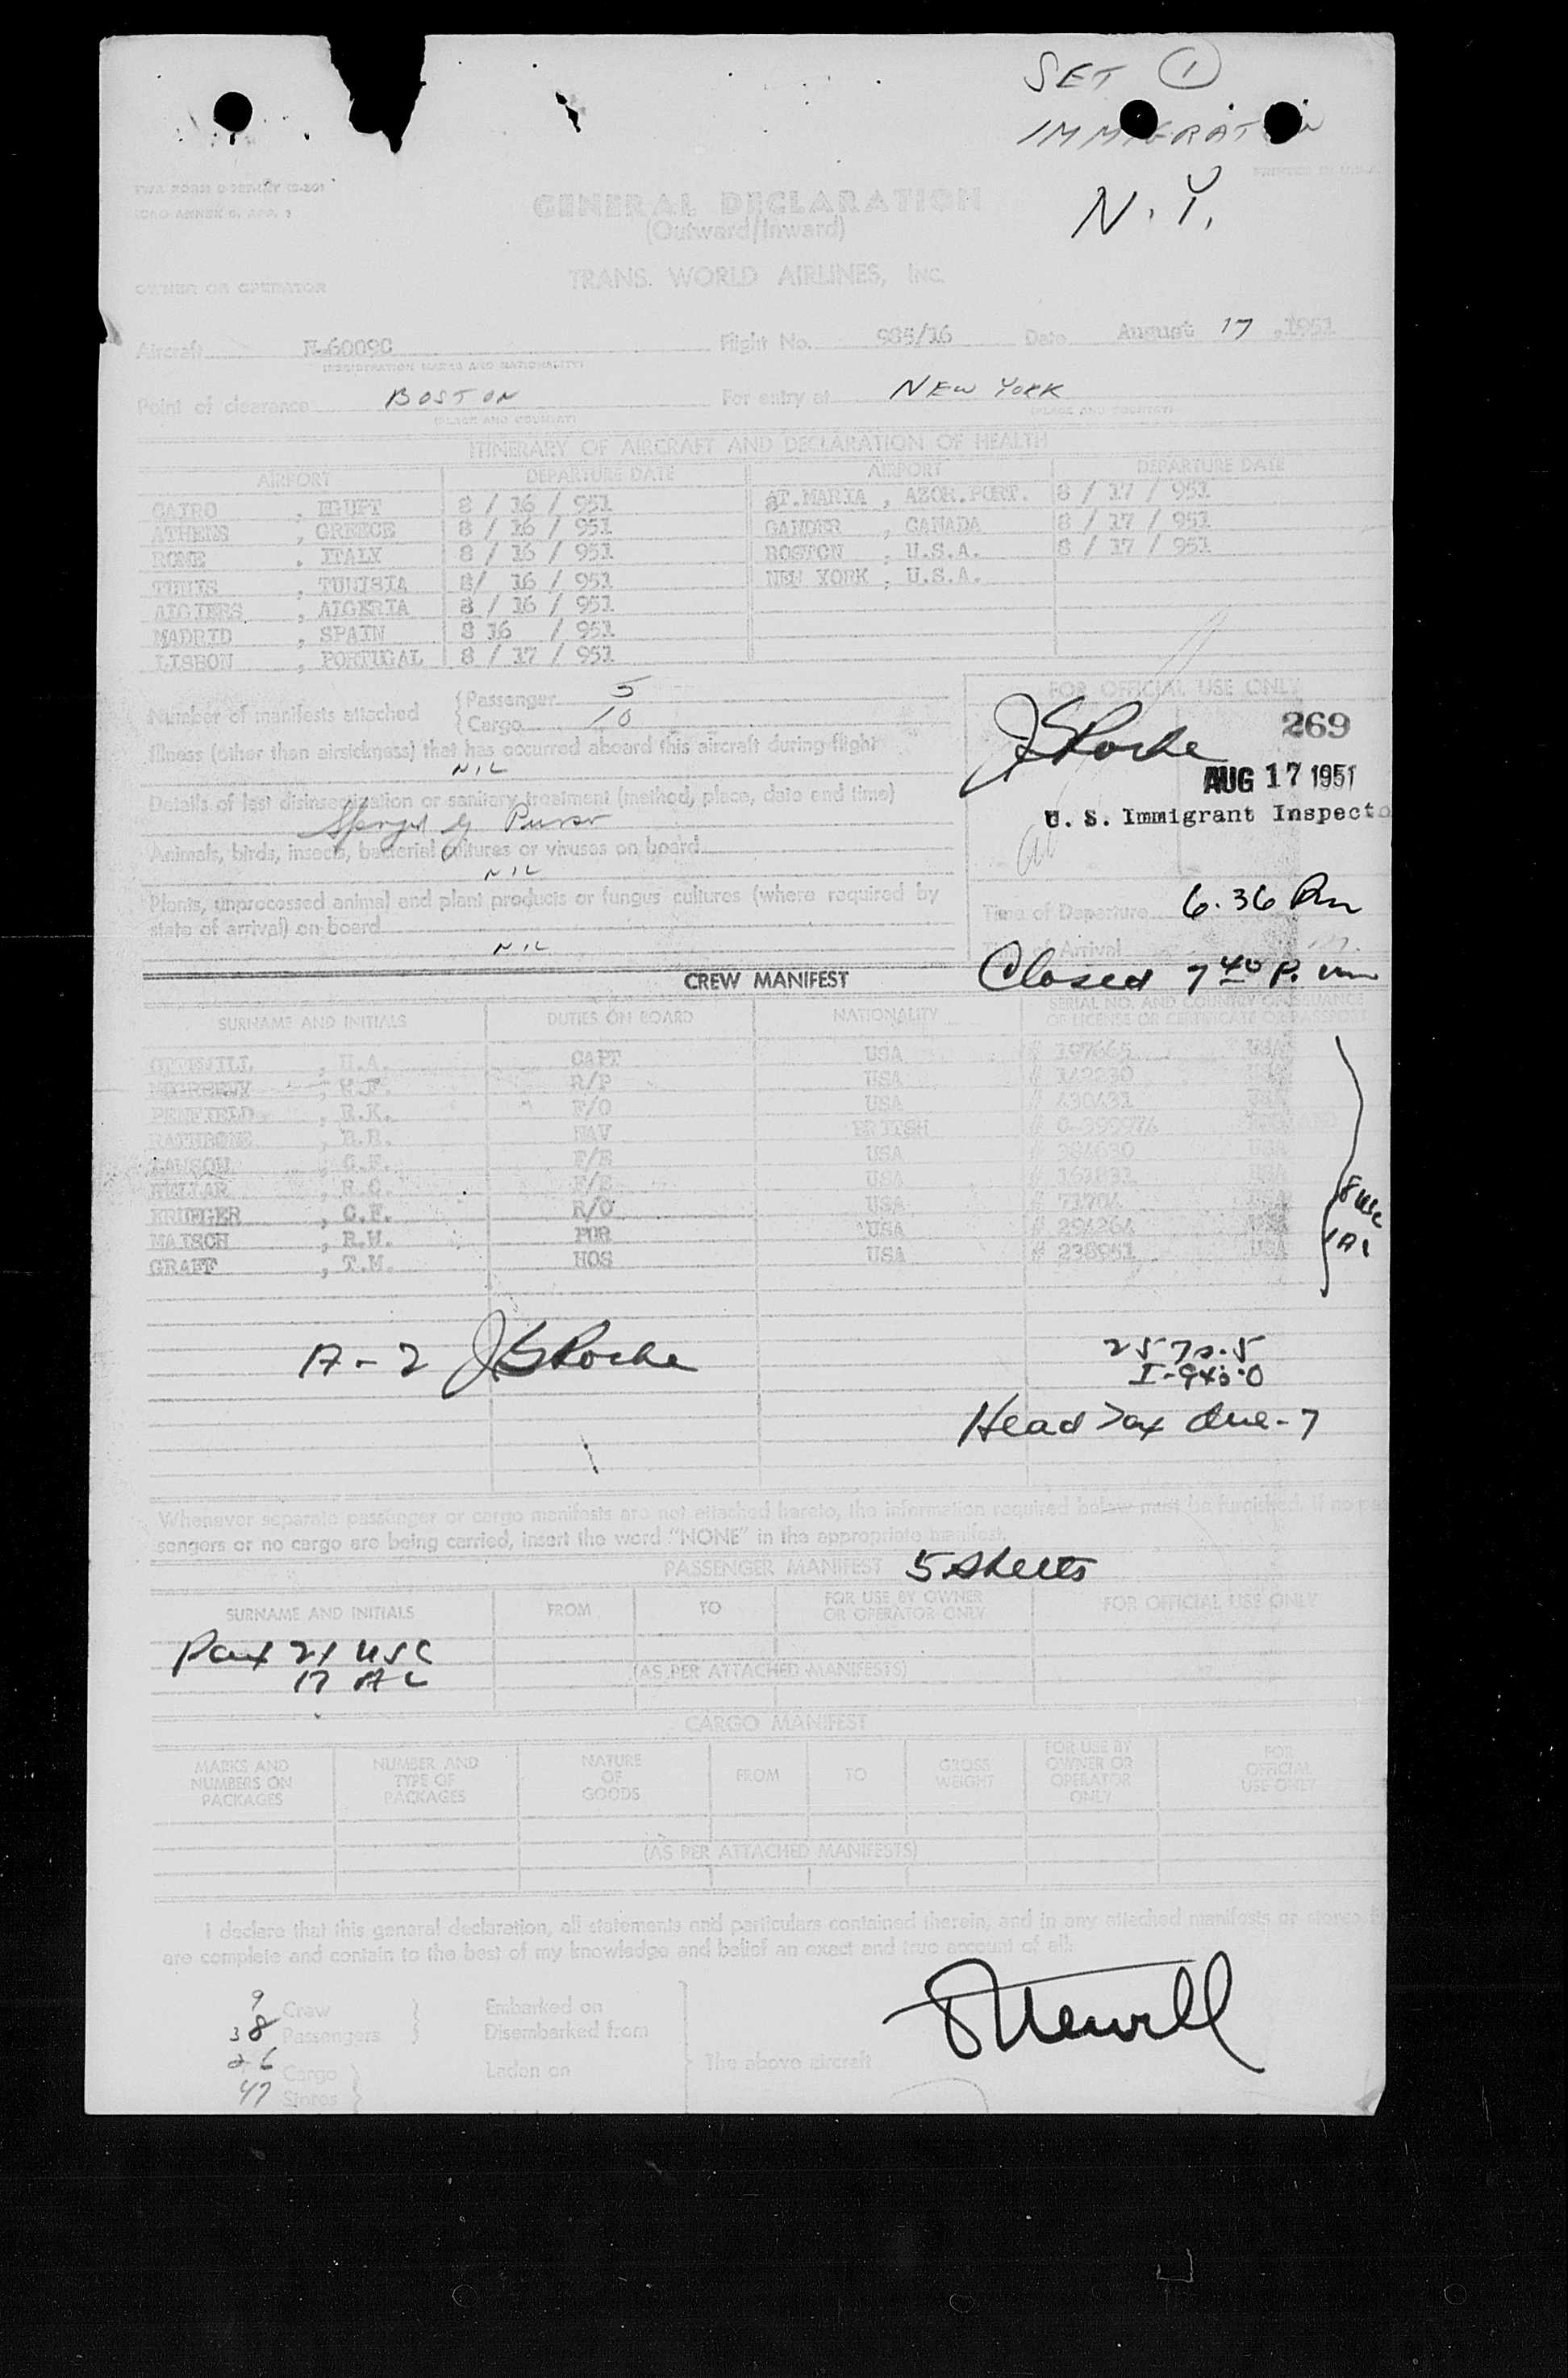 SET 1
IMMIGRATION
N.Y.
PRINTED IN U.S.A.
ICAO ANNEX 9, APP. 1
GENERAL DECLARATION
(Outward/Inward)
TRANS WORLD AIRLINES, INC.
OWNER OR OPERATOR
Aircraft N-6009C Flight No. 985/16 Date August 17, 1951
(REGISTRATION MARKS AND NATIONALITY)
Point of clearance BOSTON For entry at NEW YORK
(PLACE AND COUNTRY) (PLACE AND COUNTRY)
ITINERARY OF AIRCRAFT AND DECLARATION OF HEALTH
AIRPORT DEPARTURE DATE AIRPORT DEPARTURE DATE
CAIRO , EGYPT 8 / 16 / 951 ST.MARIA , AZOR.PORT. 8 / 17 / 951
ATHENS , GREECE 8 / 16 / 951 GANDER , CANADA 8 / 17 / 951
ROME . ITALY 8 / 16 / 951 BOSTON , U.S.A. 8 / 17 / 951
TUNIS , TUNISIA 8/ 16 / 951 NEW YORK , U.S.A.
ALGIERS , ALGERIA 8 / 16 / 951
MADRID , SPAIN 8 16 / 951
LISBON , PORTUGAL 8 / 17 / 951
Number of manifests attached Passenger 5
Cargo 10
FOR OFFICIAL USE ONLY
JSRoche 269
AUG 17 1951
U. S. Immigrant Inspecto
Illness (other than airsickness) that has occurred aboard this aircraft during flight
NIL
Details of last disinsectization or sanitary treatment (method, place, date and time)
Purser
Animals, birds, insects, bacterial cultures or viruses on board
NIL
Plants, unprocessed animal and plant products or fungus cultures (where required by
state of arrival) on board
NIL
Time of Departure 6.36 Pm
Time of Arrival
Closed 7 40 P. m
CREW MANIFEST
SURNAME AND INITIALS DUTIES ON BOARD NATIONALITY SERIAL NO. AND COUNTRY OF ISSUANCE
OF LICENSE OR CERTIFICATE OR PASSPORT
OTTEWILL , H.A. CAPT USA # 197665 USA
R/P USA # 142230 USA
PENFIELD , R.K. F/O USA # 430431 USA
RATHBONE , NAV BRITISH
LAWSON , G.F. F/E USA # 384630 USA
F/E USA # 161831 USA
KRUEGER , C.F. R/O USA # 71704 USA
MAISCH , R.W. PUR USA # 294264 USA
GRAFF , T.M. HOS USA # 238951 USA
8 USC
1 Al
A-2 JSRoche
Head Tax due - 7
Whenever separate passenger or cargo manifests are not attached hereto, the information required below must be furnished. If no pas
sengers or no cargo are being carried, insert the word "NONE" in the appropriate manifest.
PASSENGER MANIFEST 5 sheets
SURNAME AND INITIALS FROM TO FOR USE BY OWNER
OR OPERATOR ONLY FOR OFFICIAL USE ONLY
Pax 21 USC
17 AL
(AS PER ATTACHED MANIFESTS)
CARGO MANIFEST
MARKS AND
NUMBERS ON
PACKAGES NUMBER AND
TYPE OF
PACKAGES NATURE
OF
GOODS FROM TO GROSS
WEIGHT FOR USE BY
OWNER OR
OPERATOR
ONLY FOR
OFFICIAL
USE ONLY
(AS PER ATTACHED MANIFESTS)
I declare that this general declaration, all statements and particulars contained therein, and in any attached manifests or stores
are complete and contain to the best of my knowledge and belief an exact and true account of all:
9 Crew Embarked on
38 Passengers Disembarked from
26 Cargo Laden on The above aircraft
47 Stores